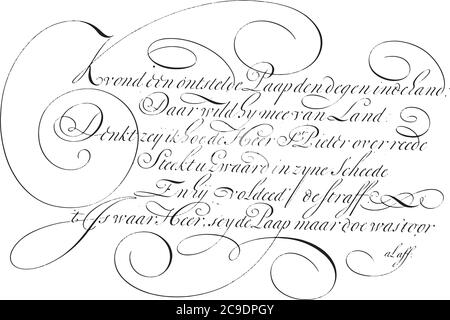 K vond één ontstelde Paap den degen in de hand;
Daar wild hy mee van Land.
Denkt zey ik hoe de Heer St. Pieter overreede
Steekt u Zwaard in zyne Scheede
En hy voldeed / de straff
't Is waar, Heer, sey de Paap maar doe was't oor
al aff.
alamy
Image ID: 2C9DPGY
www.alamy.com